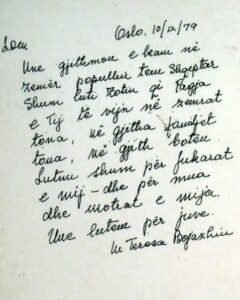 Oslo, 10/12/79
Une gjithmon e kam në
zemër popullin tem Shqiptar
Shum luti Zotin qi Paqja
e Tij të vijn në zemrat
tona, në gjitha familjet
tona, në gjith botën.
Lutnu shum për fukarat
e mij – dhe për mua
dhe motrat e mija.
Une lutem për juve.
M Teresa Bojaxhiu